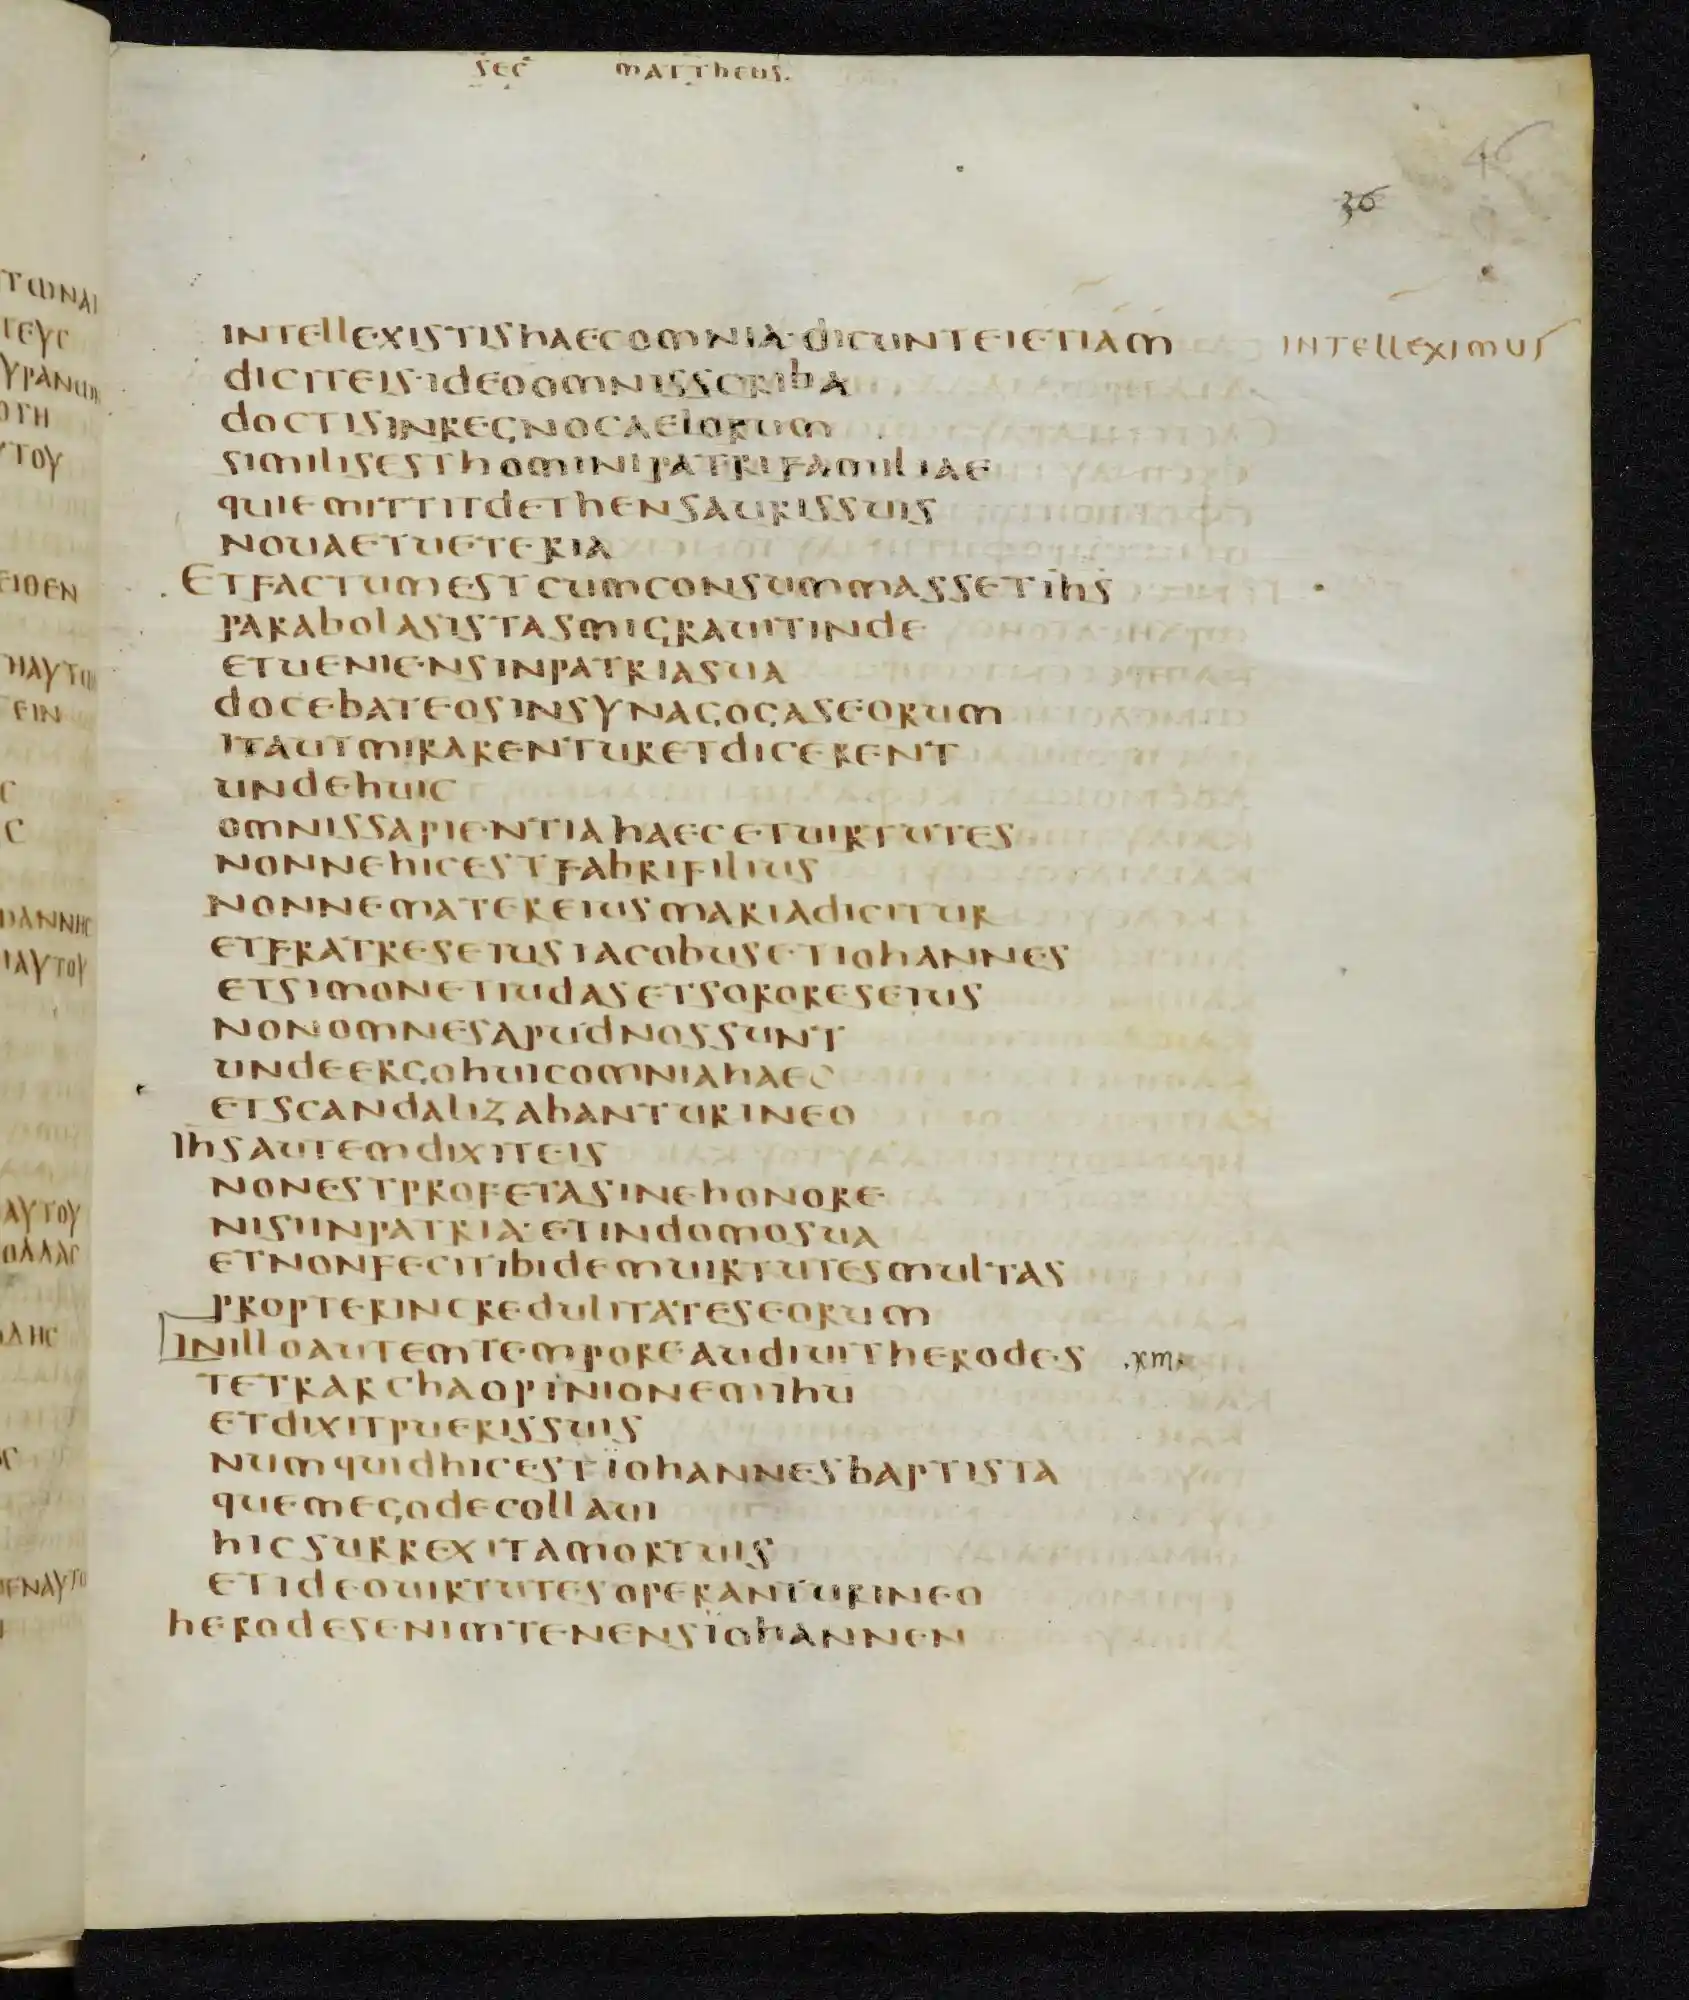 SEC MATTHEUS.
46
36
INTELLEXISTISHAECOMNIA·DICUNTEIETIAM INTELLEXIMUS
DICITEIS·IDEOOMNISSCRIBA
DOCTISINREGNOCAELORUM
SIMILISESTHOMINIPATRIFAMILIAE
QUIEMITTITDETHENSAURISSUIS
NOUAETUETERIA
ETFACTUMESTCUMCONSUMMASSETIHS
PARABOLASISTASMIGRAUITINDE
ETUENIENSINPATRIASUA
DOCEBATEOSINSYNAGOGASEORUM
ITAUTMIRARENTURETDICERENT
UNDEHUIC
OMNISSAPIENTIAHAECETUIRTUTES
NONNEHICESTFABRIFILIUS
NONNEMATEREIUSMARIADICITUR
ETFRATRESEIUSIACOBUSETIOHANNES
ETSIMONETIUDASETSORORESEIUS
NONOMNESAPUDNOSSUNT
UNDEERGOHUICOMNIAHAEC
ETSCANDALIZABANTURINEO
IHSAUTEMDIXITEIS
NONESTPROFETASINEHONORE
NISIINPATRIA·ETINDOMOSUA
ETNONFECITIBIDEMUIRTUTESMULTAS
PROPTERINCREDULITATESEORUM
INILLOAUTEMTEMPOREAUDIUITHERODES
TETRARCHAOPINIONEMIHU
ETDIXITPUERISSUIS
NUMQUIDHICESTIOHANNESBAPTISTA
QUEMEGODECOLLAUI
HICSURREXITAMORTUIS
ETIDEOUIRTUTESOPERANTURINEO
HERODESENIMTENENSIOHANNEN